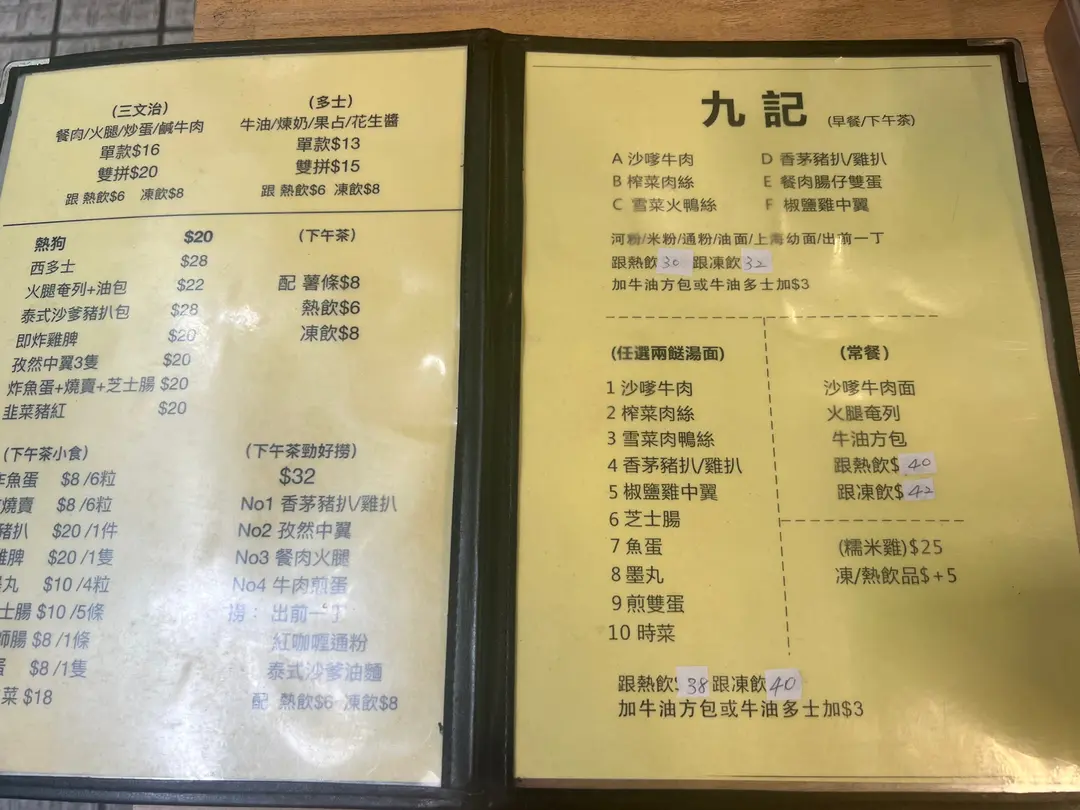 (三文治)
餐肉/火腿/炒蛋/鹹牛肉
單款$16
雙拼$20
跟 熱飲$6 凍飲$8
(多士)
牛油/煉奶/果占/花生醬
單款$13
雙拼$15
跟 熱飲$6 凍飲$8
熱狗 $20
西多士 $28
火腿奄列+油包 $22
泰式沙爹豬扒包 $28
即炸雞脾 $20
孜然中翼3隻 $20
炸魚蛋+燒賣+芝士腸 $20
韭菜豬紅 $20
(下午茶)
配 薯條$8
熱飲$6
凍飲$8
(下午茶小食)
魚蛋 $8/6粒
燒賣 $8/6粒
豬扒 $20/1件
脾 $20/1隻
丸 $10/4粒
士腸 $10/5條
腸 $8/1條
蛋 $8/1隻
菜 $18
(下午茶勁好撈)
$32
No1 香茅豬扒/雞扒
No2 孜然中翼
No3 餐肉火腿
No4 牛肉煎蛋
撈: 出前一丁
紅咖喱通粉
泰式沙爹油麵
配 熱飲$6 凍飲$8
九記 (早餐/下午茶)
A 沙嗲牛肉
B 榨菜肉絲
C 雪菜火鴨絲
D 香茅豬扒/雞扒
E 餐肉腸仔雙蛋
F 椒鹽雞中翼
河粉/米粉/通粉/油面/上海幼面/出前一丁
跟熱飲30 跟凍飲32
加牛油方包或牛油多士加$3
(任選兩餸湯面)
1 沙嗲牛肉
2 榨菜肉絲
3 雪菜肉鴨絲
4 香茅豬扒/雞扒
5 椒鹽雞中翼
6 芝士腸
7 魚蛋
8 墨丸
9 煎雙蛋
10 時菜
(常餐)
沙嗲牛肉面
火腿奄列
牛油方包
跟熱飲$40
跟凍飲$42
(糯米雞)$25
凍/熱飲品$+5
跟熱飲38 跟凍飲40
加牛油方包或牛油多士加$3